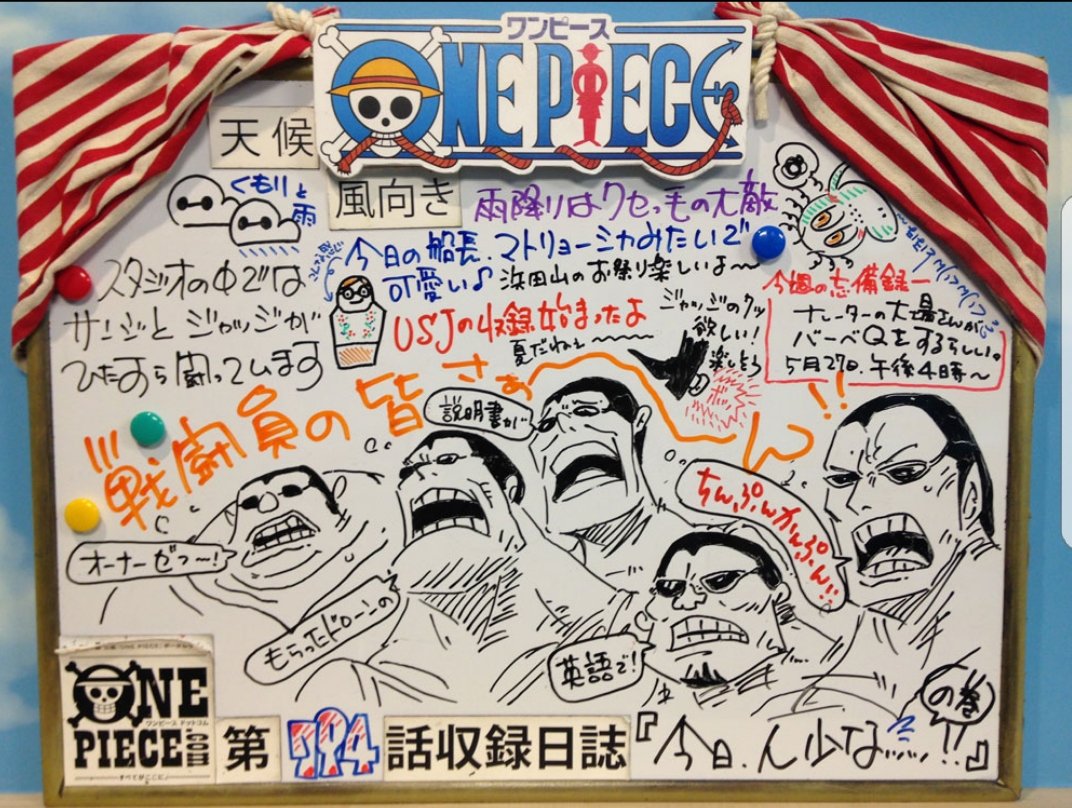 ワンピース
ONE PIECE
天候
くもりと
雨
風向き
雨降りはクセっ毛の大敵
今日の船長、マトリョーシカみたいで
可愛い♪
浜田山のお祭り楽しいよ〜〜
スタジオの中では
サンジとジャッジが
ひたすら闘っています
USJの収録始まったよ
夏だねぇ〜〜〜
ジャッジのクツ
欲しい!
今週の忘備録ー
ナレーターの大場さんが
バーベQをするらしい。
5月27日.午後4時〜
戦闘員の皆さぁ
ん!!
説明書が
ちんぷんかんぷん!!
オーナーゼフ〜!
もらったドローンの
英語で!
ONE
ワンピース ドットコム
PIECE.com
すべてがここに
第
794
話収録日誌
『今日、ん少な……!!』
の巻